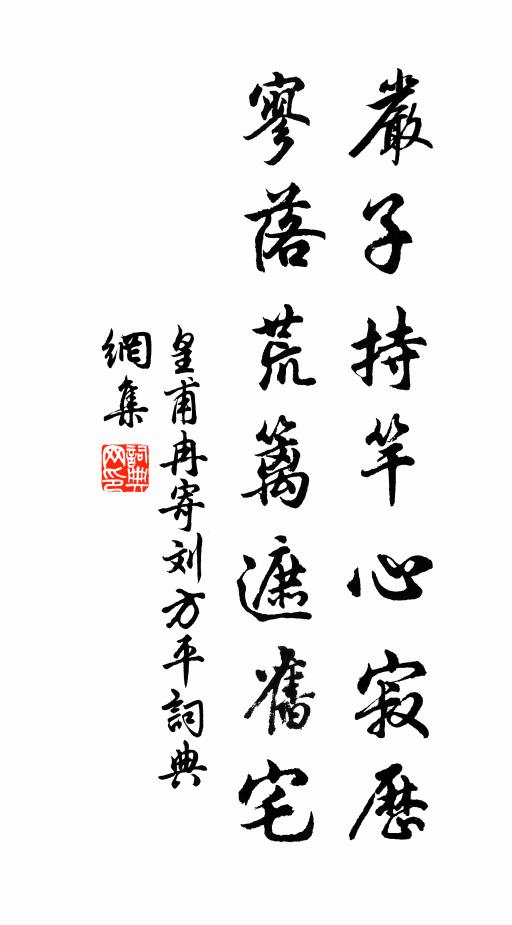 嚴子持竿心寂歷
寥落荒籬遮舊宅
皇甫冉寄刘方平詞典
網集
詞典
网印